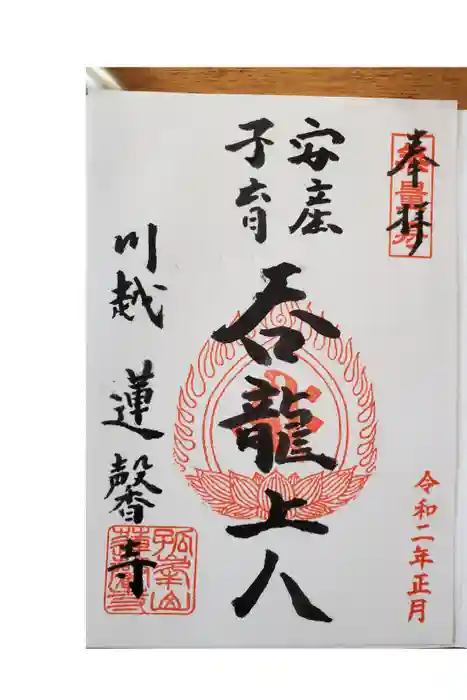 奉拝
令和二年正月
安産
子育
呑龍上人
川越 蓮馨寺